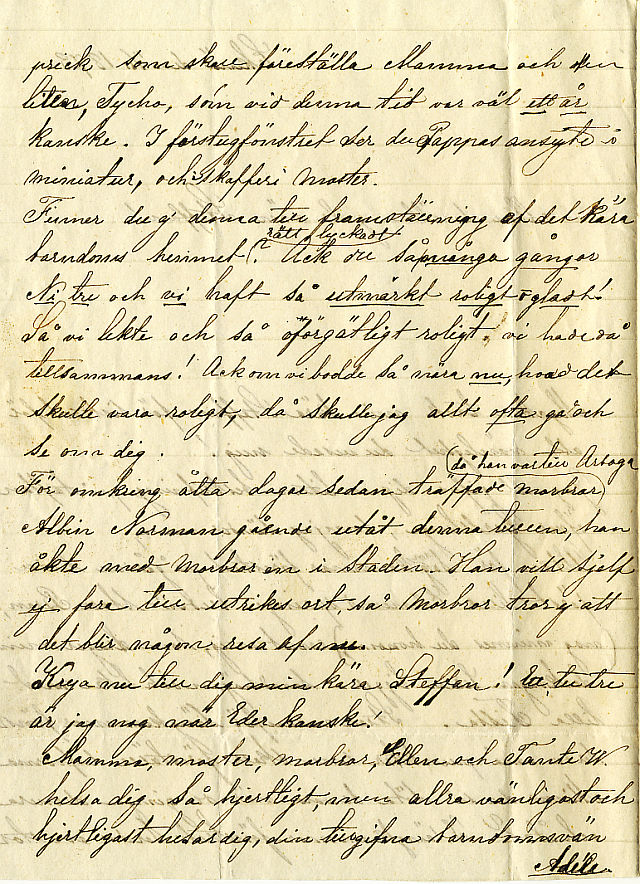 prick som skall föreställa Mamma och den
lilla, Tycho, som vid denna tid var väl ett år
kanske. I förstugfönstret ser du Pappas ansigte i
miniatur, och i skafferi moster.
Finner du ej denna till framställning af det kära
rätt lyckad!
barndoms hemmet? Ack du så många gånger
Ni tre och vi haft så utmärkt roligt o gladt!
Så vi lekte och så oförgätligt roligt vi hade då
tillsammans! Ack om vi bodde så nära nu, hvad det
skulle vara roligt, då skulle jag allt ofta gå och
se om dig.
(då han var till Arboga)
För omkring åtta dagar sedan träffade morbror
Albin Norman gående utåt denna tullen, han
åkte med Morbror in i staden. Han vill sjelf
ej fara till utrikes ort, så Morbror tror ej att
det blir någon resa af nu.
Krya nu till dig min kära Steffan! tre
är jag nog när Eder kanske!
Mamma, moster, morbror, Ellen och Tante W.
helsa dig så hjertligt, men allra vänligast och
hjertligast helsar dig, din tillgifna barndomsvän
Adéle.